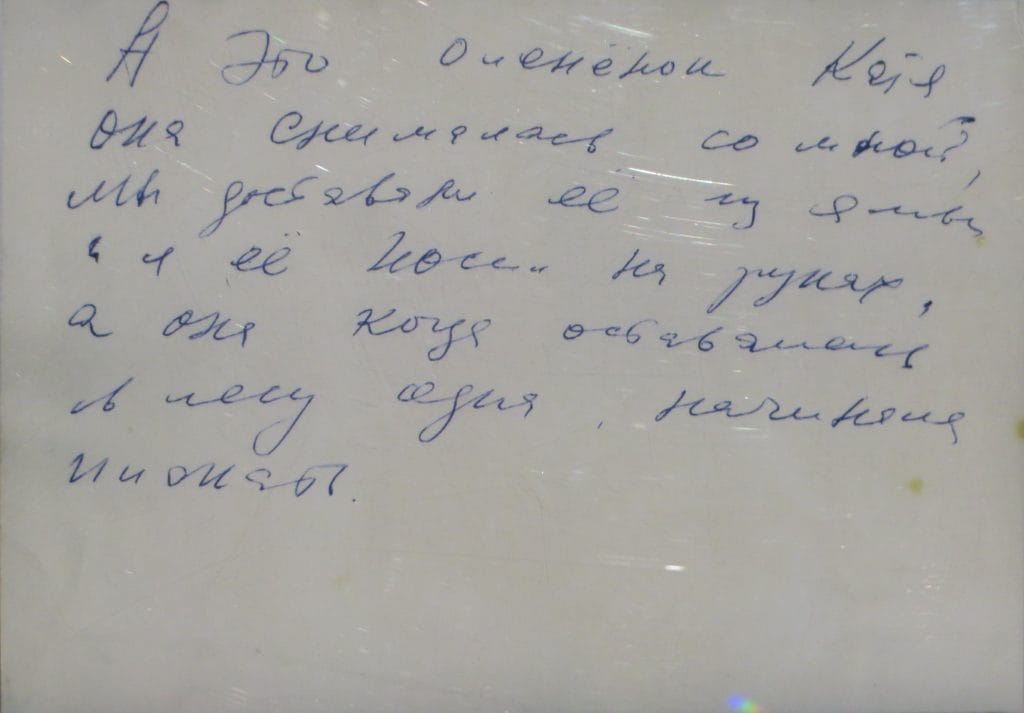 А это оленёнок Катя
она снималась со мной,
мы доставали её из ямы
и я её носил на руках,
а она когда оставалась
в лесу одна, начинала
пи